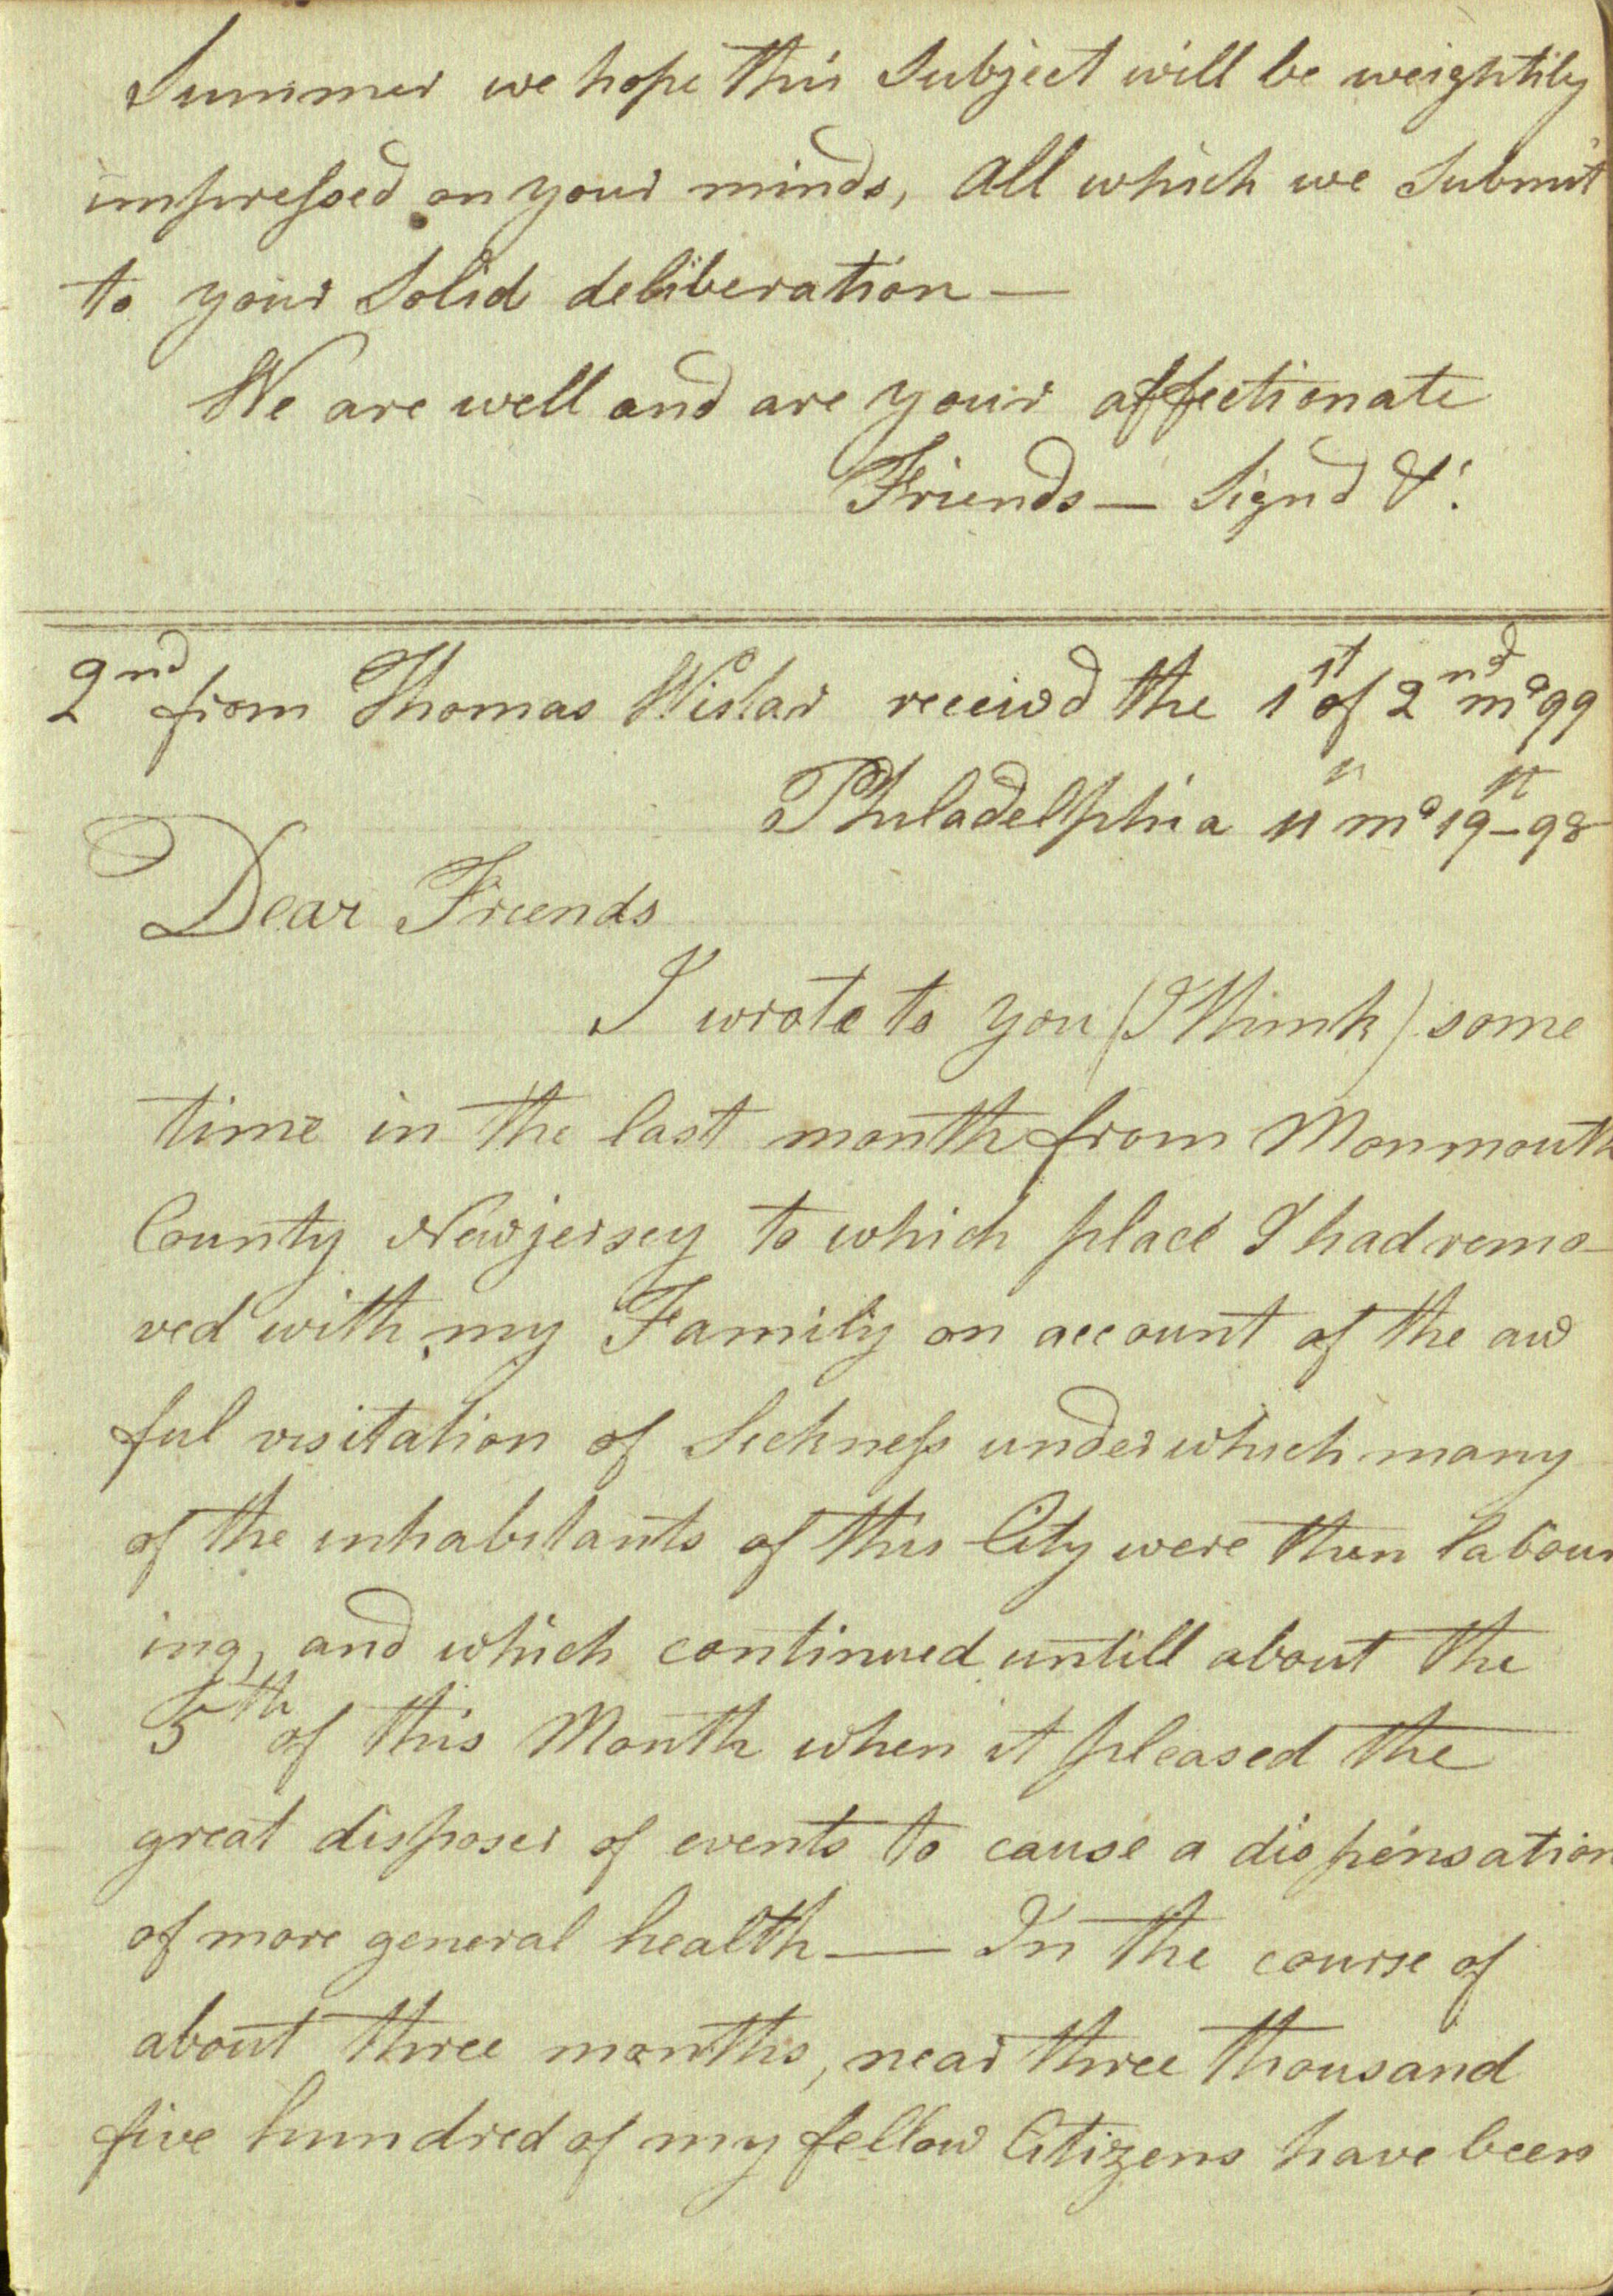 Summer we hope this Subject will be weightily
impressed on your minds, all which we Submit
to your Solid deliberation —
We are well and are your affectionate
Friends — Signd &c.
2nd from Thomas Wistar receivd the 1st of 2nd mo 99
Philadelphia 11 mo 19 - 98
Dear Friends
I wrote to you (I think) some
time in the last month from Monmouth
County Newjersey to which place I had remo-
ved with my Family on account of the aw
ful visitation of Sickness under which many
of the inhabitants of this City were then labour
ing, and which continued untill about the
5th of this Month when it pleased the
great disposer of events to cause a dispensation
of more general health — In the course of
about three months, near three thousand
five hundred of my fellow Citizens have been